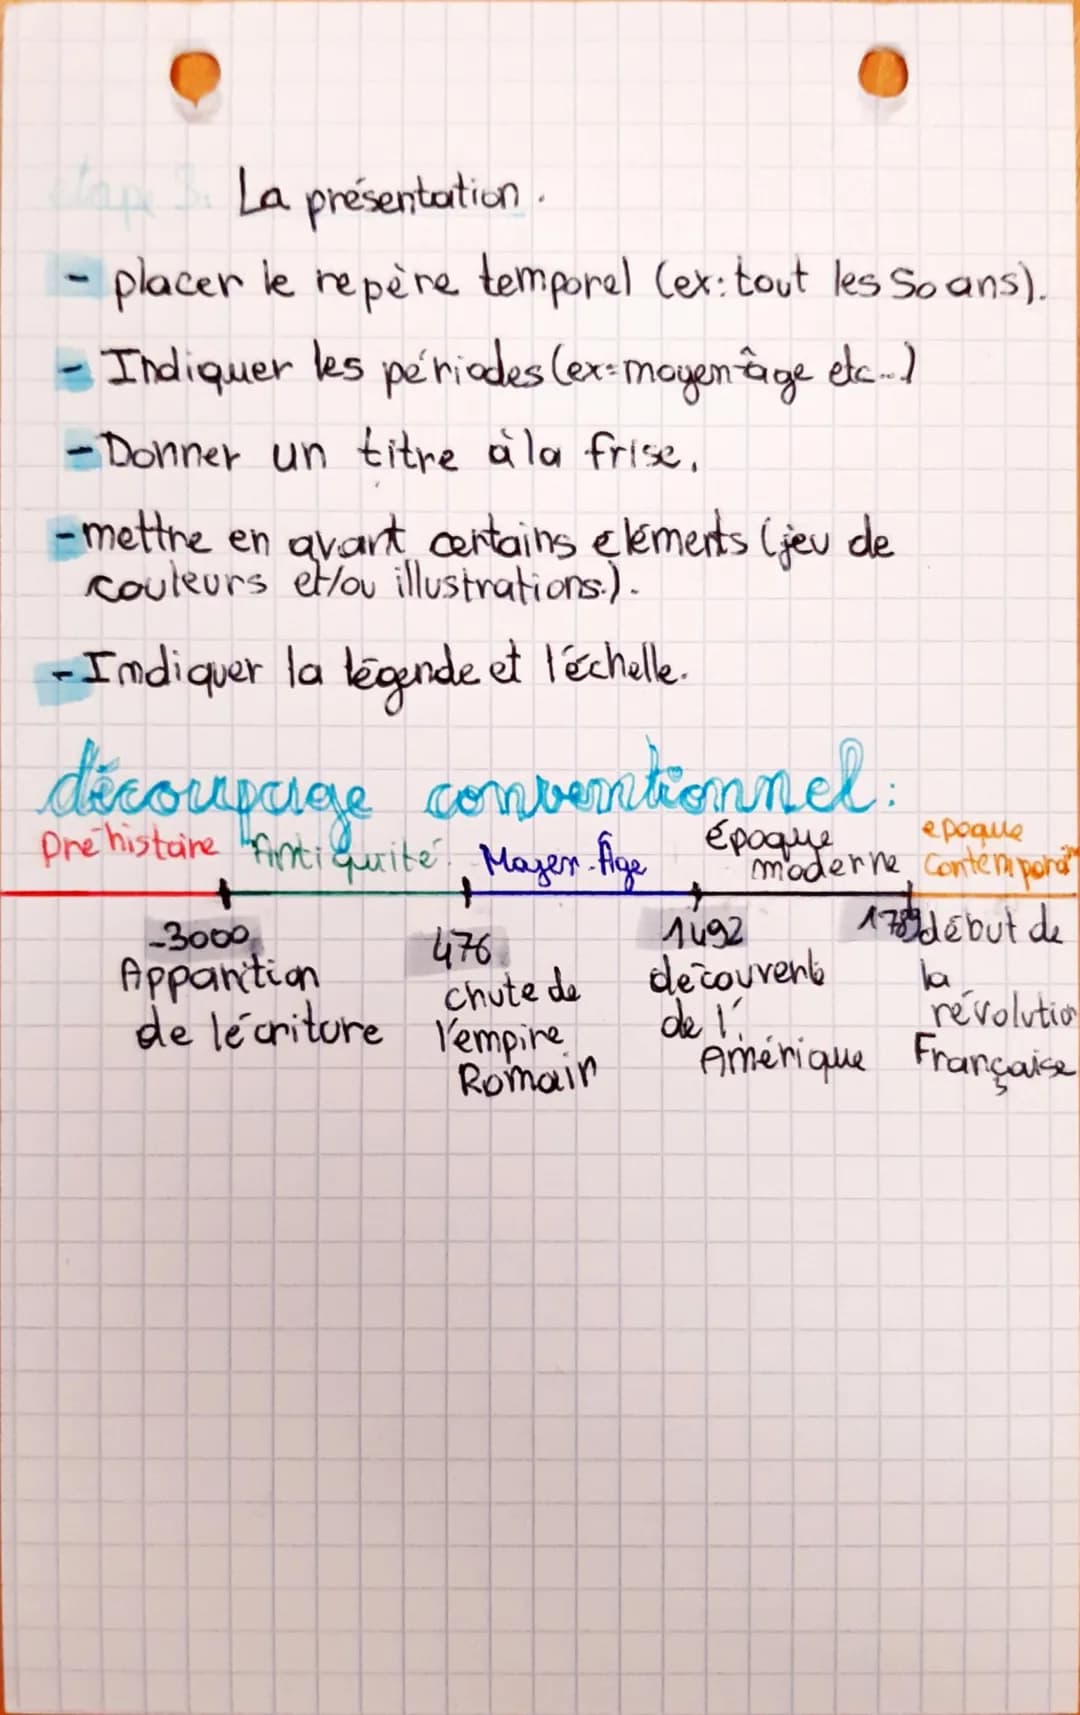 étape 3: La présentation.
- placer le repère temporel (ex: tout les 50 ans).
- Indiquer les périodes (ex= moyen-âge etc...)
- Donner un titre à la frise.
- mettre en avant certains éléments (jeu de
couleurs et/ou illustrations.).
- Indiquer la légende et l'échelle.
découpage conventionnel:
Préhistoire Antiquité. Moyen-Âge époque moderne epoque Contempora
-3000 Apparition de lécriture
476 chute de l'empire Romain
1492 découverte de l'Amérique
1789 début de la révolution Française